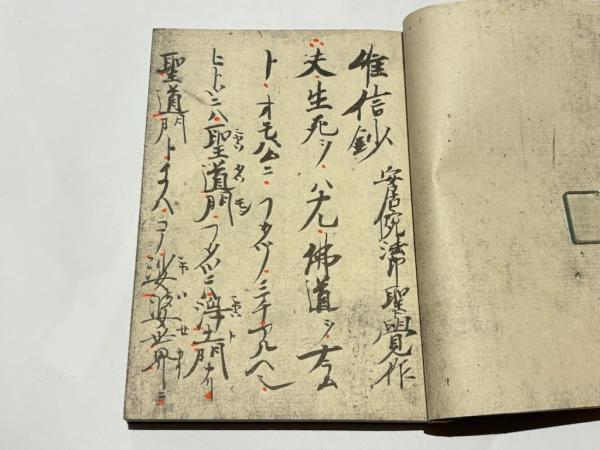 唯信鈔 安居院法印聖覺作
夫生死ヲハナレ佛道ヲナラム
トオモハムニフタツノミチアルヘシ
ヒトツニハ聖道門フタツニハ淨土門ナリ
聖道門トイフハコノ娑婆世界ニ